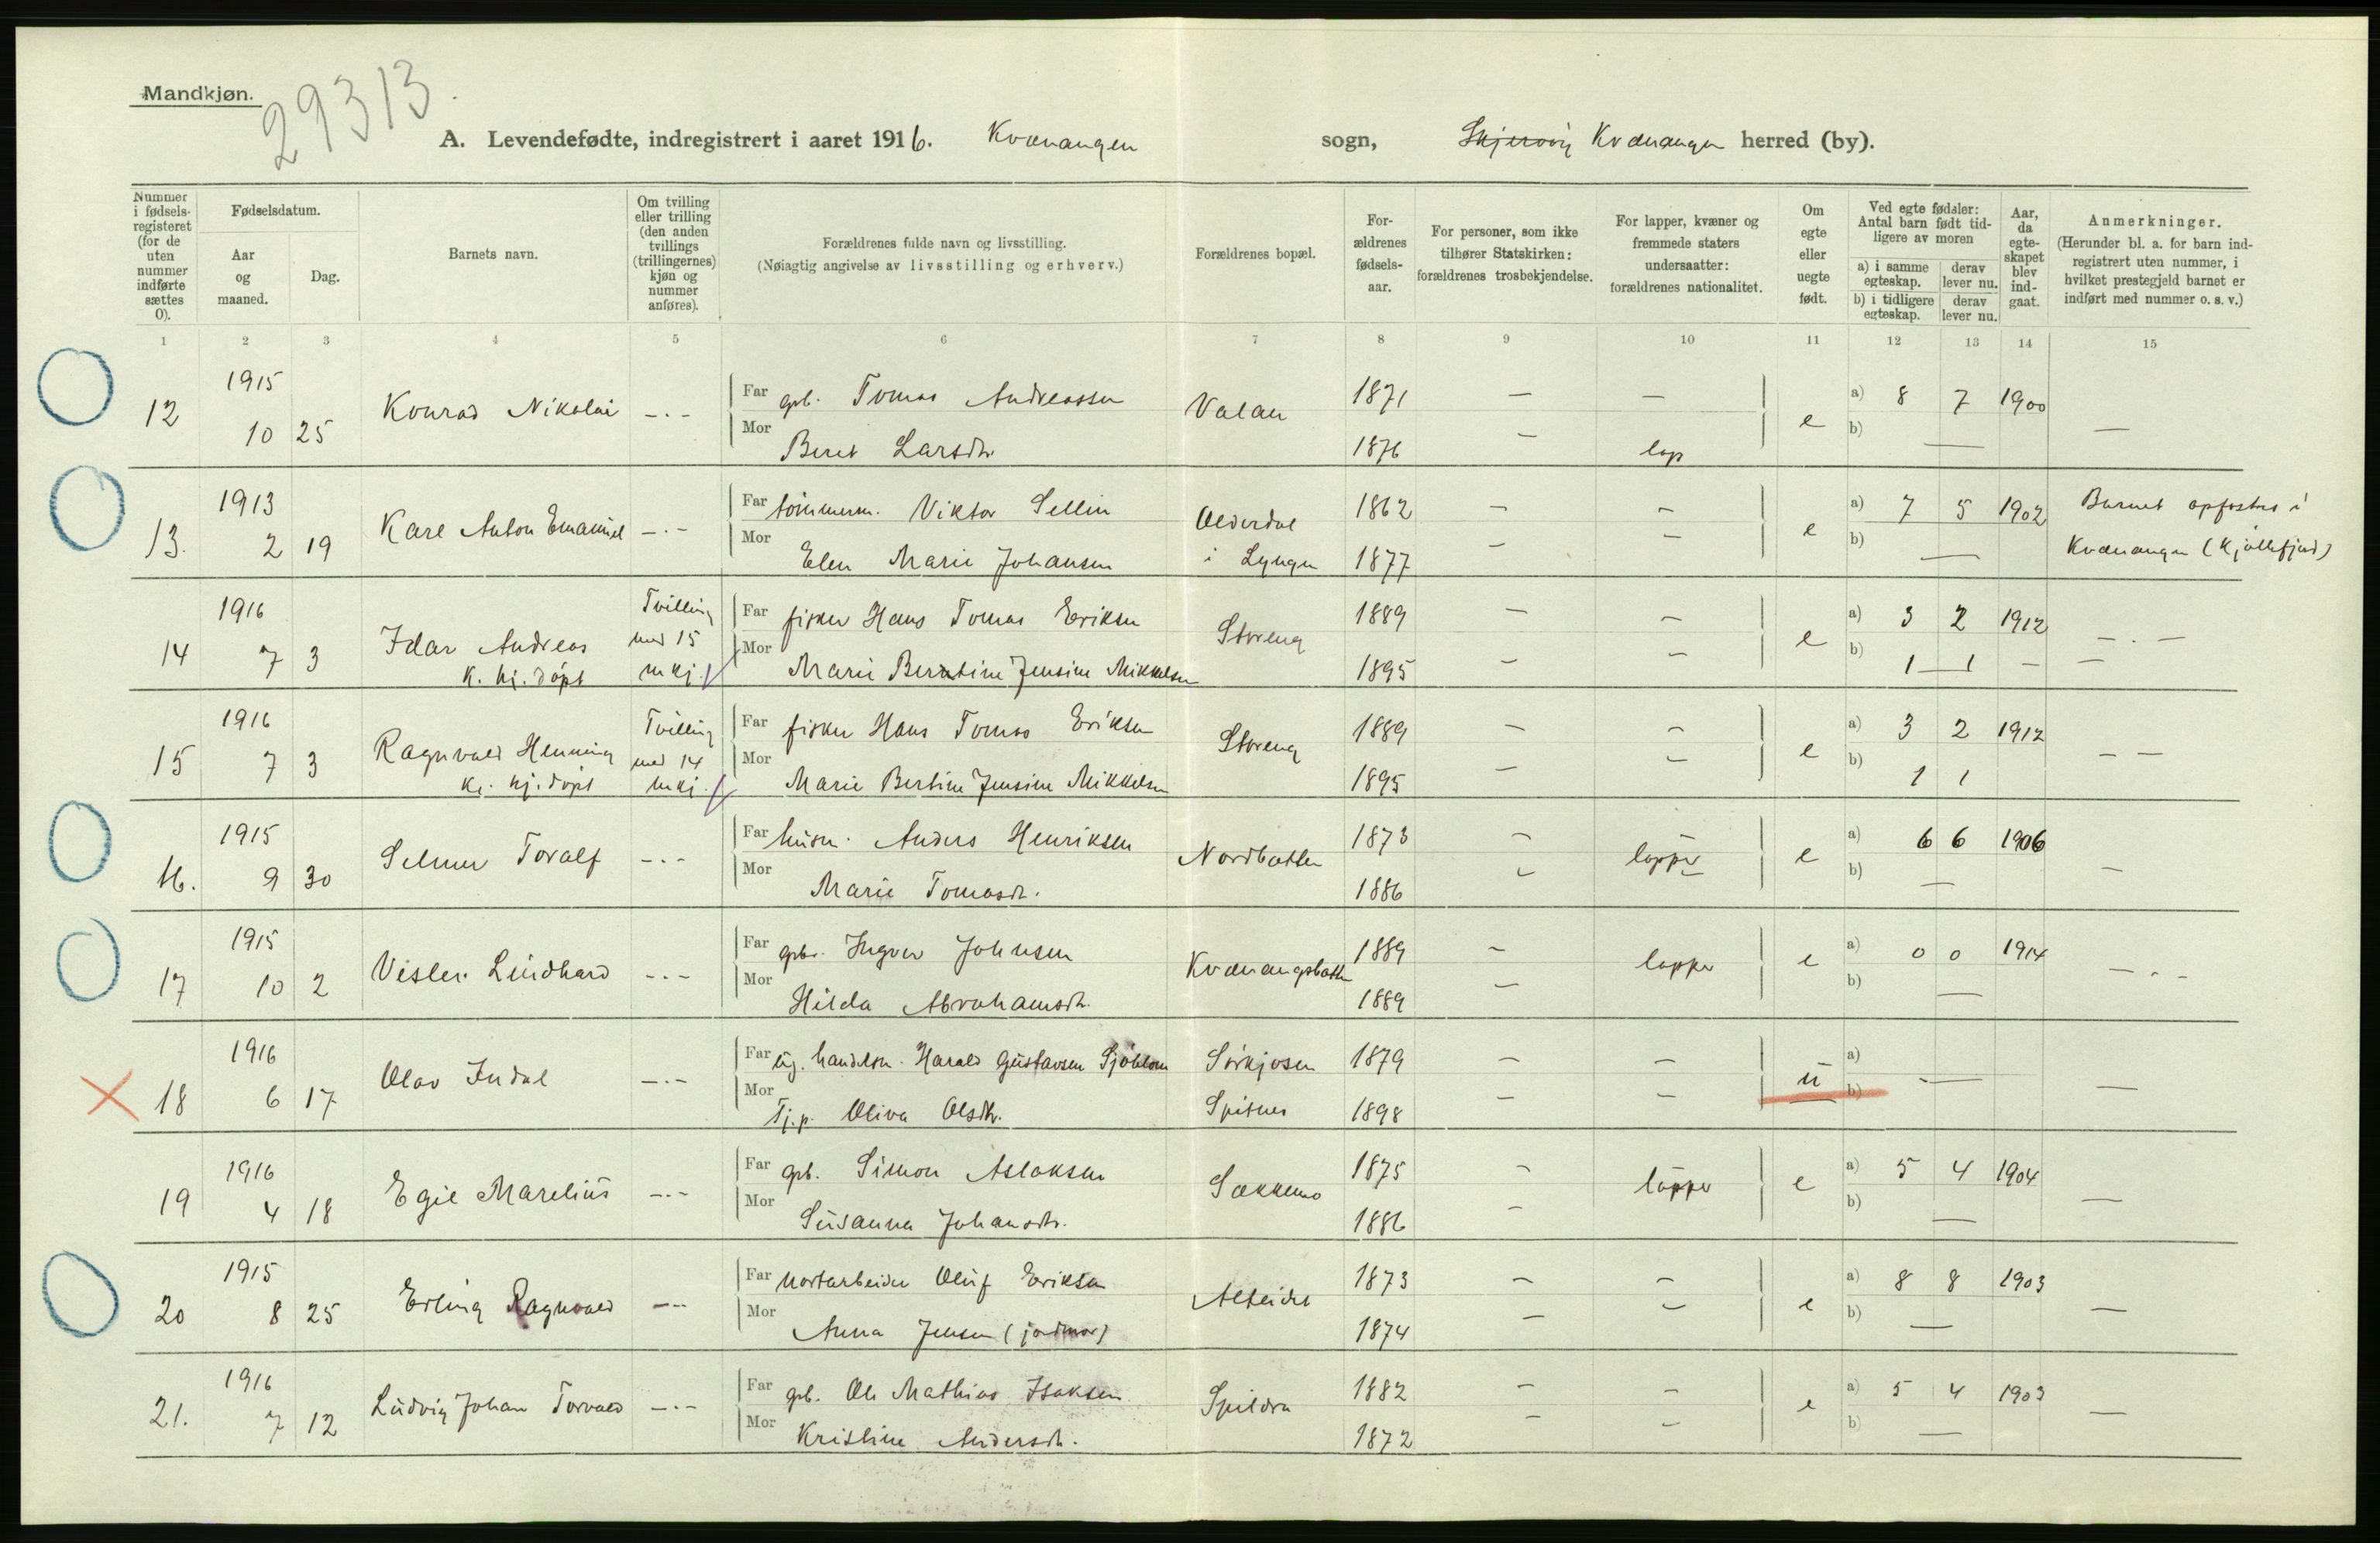 Mandkjøn.
29313.
A. Levendefødte, indregistrert i aaret 1916. Kvænangen sogn, Skjervøy Kvænangen herred (by).
Nummer i fødselsregisteret (for de uten nummer indførte sættes 0).
Fødselsdatum.
Aar og maaned.
Dag.
Barnets navn.
Om tvilling eller trilling (den anden tvillings (trillingernes) kjøn og nummer anføres).
Forældrenes fulde navn og livsstilling.
(Nøiagtig angivelse av livsstilling og erhverv.)
Forældrenes bopæl.
For-ældrenes fødsels-aar.
For personer, som ikke tilhører Statskirken: forældrenes trosbekjendelse.
For lapper, kvæner og fremmede staters undersaatter: forældrenes nationalitet.
Om egte eller uegte født.
Ved egte fødsler: Antal barn født tidligere av moren
a) i samme egteskap. derav lever nu.
b) i tidligere egteskap. derav lever nu.
Aar, da egteskapet blev indgaat.
Anmerkninger.
(Herunder bl. a. for barn indregistrert uten nummer, i hvilket prestegjeld barnet er indført med nummer o. s. v.)
1 2 3 4 5 6 7 8 9 10 11 12 13 14 15
1915
12 10 25 Konrad Nikolai -.- Far gbr. Tomas Andreassen Valan 1871 — — e a) 8 7 1900 —
Mor Beret Larsdtr. 1876 — lap b) —
1913
13. 2 19 Karl Anton Emanuel -.- Far tømmerm. Viktor Sellin Olderdal 1862 — — e a) 7 5 1902 Barnet opfostres i
Mor Elen Marie Johansen i Lyngen 1877 — — b) — Kvænangen (Kjøllefjord)
1916
14 7 3 Idar Andreas Tvilling med 15 Far fisker Hans Tomas Eriksen Storeng 1889 — — e a) 3 2 1912 -.-
K. hj. døpt mkj. Mor Marie Berntine Jensine Mikkelsen 1895 — — b) 1 1 — —
1916
15 7 3 Ragnvald Henning Tvilling med 14 Far fisker Hans Tomas Eriksen Storeng 1889 — — e a) 3 2 1912 — —
K. hj. døpt mkj. Mor Marie Bertine Jensine Mikkelsen 1895 — — b) 1 1
1915
16. 9 30 Selmer Toralf -.- Far husm. Anders Henriksen Nordbotten 1873 — lapper e a) 6 6 1906 —
Mor Marie Tomasdt. 1886 — b) —
1915
17 10 2 Vesler Lindhard -.- Far gbr. Ingver Johnsen Kvænangsbotten 1889 — lapper e a) 0 0 1914 -.-
Mor Hilda Abrahamsdt. 1889 — b) —
1916
18 6 17 Olav Indal -.- Far ug. handelsm. Harald Gustavsen Sjöblom Sørkjosen 1879 — — u a) — —
Mor Tj.p. Oliva Olsdtr. Spitnes 1898 — — b)
1916
19 4 18 Egil Marelius -.- Far gbr. Simon Aslaksen Sækkemo 1875 — lapper e a) 5 4 1904 —
Mor Susanna Johansdtr. 1886 — b) —
1915
20 8 25 Erling Ragnvald -.- Far Oluf Eriksen Alteidet 1873 — — e a) 8 8 1903 —
Mor Anna Jensen (jordmor) 1874 — — b) —
1916
21. 7 12 Ludvig Johan Torvald -.- Far gbr. Ole Mathias Isaksen Spildra 1882 — — e a) 5 4 1903 —
Mor Kristine Andersdt. 1872 — — b) —